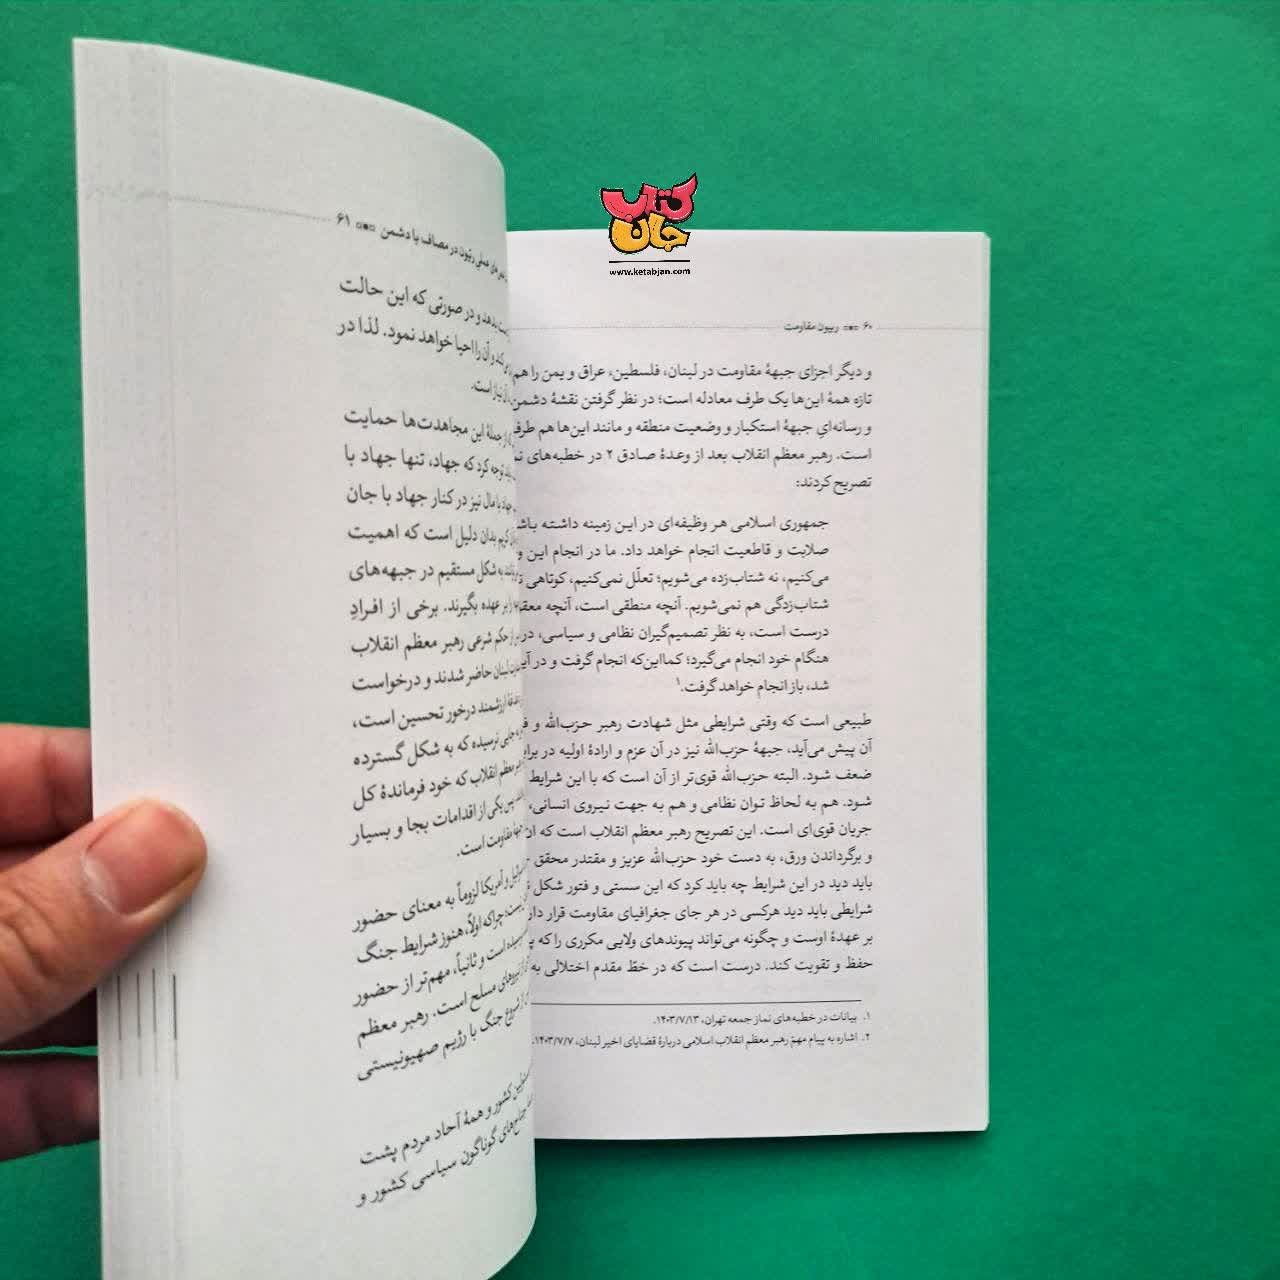 کتاب
جان
www.ketabjan.com
۶۰ ربیون مقاومت
و دیگر اجزای جبههٔ مقاومت در لبنان، فلسطین، عراق و یمن را هم
تازه همهٔ این‌ها یک طرف معادله است؛ در نظر گرفتن نقشهٔ دشمن
و رسانه‌ایِ جبههٔ استکبار و وضعیت منطقه و مانند این‌ها هم طرف
است. رهبر معظم انقلاب بعد از وعدهٔ صادق ۲ در خطبه‌های
تصریح کردند:
جمهوری اسلامی هر وظیفه‌ای در این زمینه داشته باشد
صلابت و قاطعیت انجام خواهد داد. ما در انجام این
می‌کنیم، نه شتاب‌زده می‌شویم؛ تعلّل نمی‌کنیم، کوتاهی
شتاب‌زدگی هم نمی‌شویم. آنچه منطقی است، آنچه
درست است، به نظر تصمیم‌گیران نظامی و سیاسی، در
هنگام خود انجام می‌گیرد؛ کمااین‌که انجام گرفت و در
شد، باز انجام خواهد گرفت.۱
طبیعی است که وقتی شرایطی مثل شهادت رهبر حزب‌الله و
آن پیش می‌آید، جبههٔ حزب‌الله نیز در آن عزم و ارادهٔ اولیه در
ضعف شود. البته حزب‌الله قوی‌تر از آن است که با این شرایط
شود. هم به لحاظ توان نظامی و هم به جهت نیروی انسانی،
جریان قوی‌ای است. این تصریح رهبر معظم انقلاب است که
و برگرداندن ورق، به دست خود حزب‌الله عزیز و مقتدر محقق
باید دید در این شرایط چه باید کرد که این سستی و فتور شکل
شرایطی باید دید هرکسی در هر جای جغرافیای مقاومت قرار دارد
بر عهدهٔ اوست و چگونه می‌تواند پیوندهای ولایی مکرری را که
حفظ و تقویت کند. درست است که در خطّ مقدم اختلالی به
۱. بیانات در خطبه‌های نماز جمعه تهران، ۱۴۰۳/۷/۱۳.
۲. اشاره به پیام مهمّ رهبر معظم انقلاب اسلامی دربارهٔ قضایای اخیر لبنان، ۱۴۰۳/۷/۷.
عملی ربیّون در مصاف با دشمن ۶۱
بدهد و در صورتی که این حالت
کند و آن را احیا خواهد نمود. لذا در
نیاز است.
از جملهٔ این مجاهدت‌ها حمایت
توجه کرد که جهاد، تنها جهاد با
جهاد با مال نیز در کنار جهاد با جان
کریم بدان دلیل است که اهمیت
به شکل مستقیم در جبهه‌های
بر عهده بگیرند. برخی از افرادِ
از حکم شرعی رهبر معظم انقلاب
لبنان حاضر شدند و درخواست
ارزشمند درخور تحسین است،
جایی نرسیده که به شکل گسترده
معظم انقلاب که خود فرماندهٔ کل
پس یکی از اقدامات بجا و بسیار
مقاومت است.
و آمریکا لزوماً به معنای حضور
نیست؛ چراکه اولاً، هنوز شرایط جنگ
است و ثانیاً، مهم‌تر از حضور
نیروهای مسلح است. رهبر معظم
از شروع جنگ با رژیم صهیونیستی
کشور و همهٔ آحاد مردم پشت
جناح‌های گوناگون سیاسی کشور و